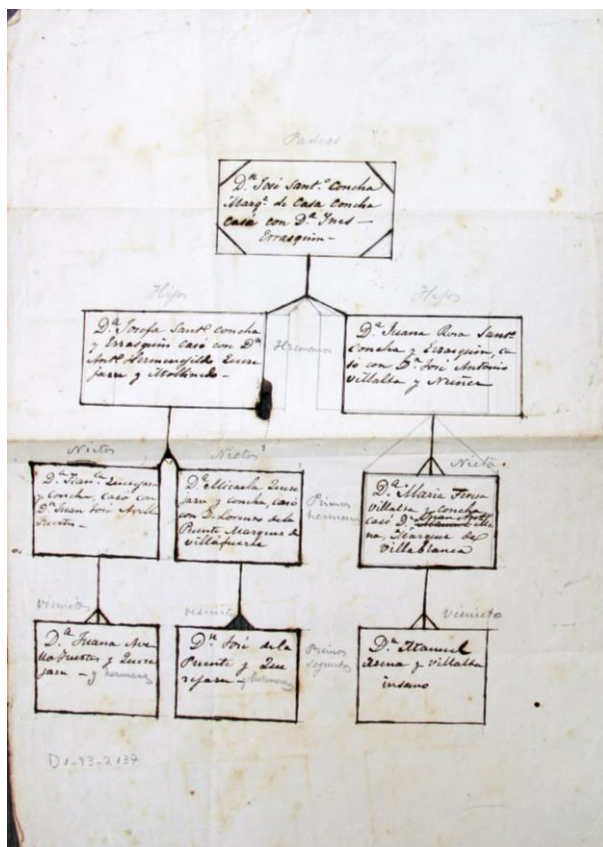 Padres
D.n José Sant.o Concha
Marq.s de Casa concha
casó con D.a Ines —
Errasquin —
Hijos
Hijos
D.a Josefa Sant.o concha
y Errasquin casó con D.n
Ant.o Hermenegildo Quere
jazu y Mollinedo —
Hermanos
D.a Juana Rosa Sant.o
concha y Errasquin, ca
só con D.n José Antonio
Villalta y Nuñez
Nietos
Nietos
Nieta
y concha, casó con
D.n Juan José
Fuerte —
D.a Micaela Quere
jazu y concha, casó
con D. Lorenzo de la
Puente Marques de
villafuerte
Primos
hermanos
D.a Maria Teresa
Villalta y concha
casó D.n
na, Marques de
Villablanca
viznietos
viznietos
Viznieto
D.a Juana Ave
llafuertes y Quere
jazu — y hermanos
D.n José de la
Puente y Que
rejazu — y hermanos
Primos
segundos
D.n Manuel
Arena y Villalta
insano
D1-93-2137